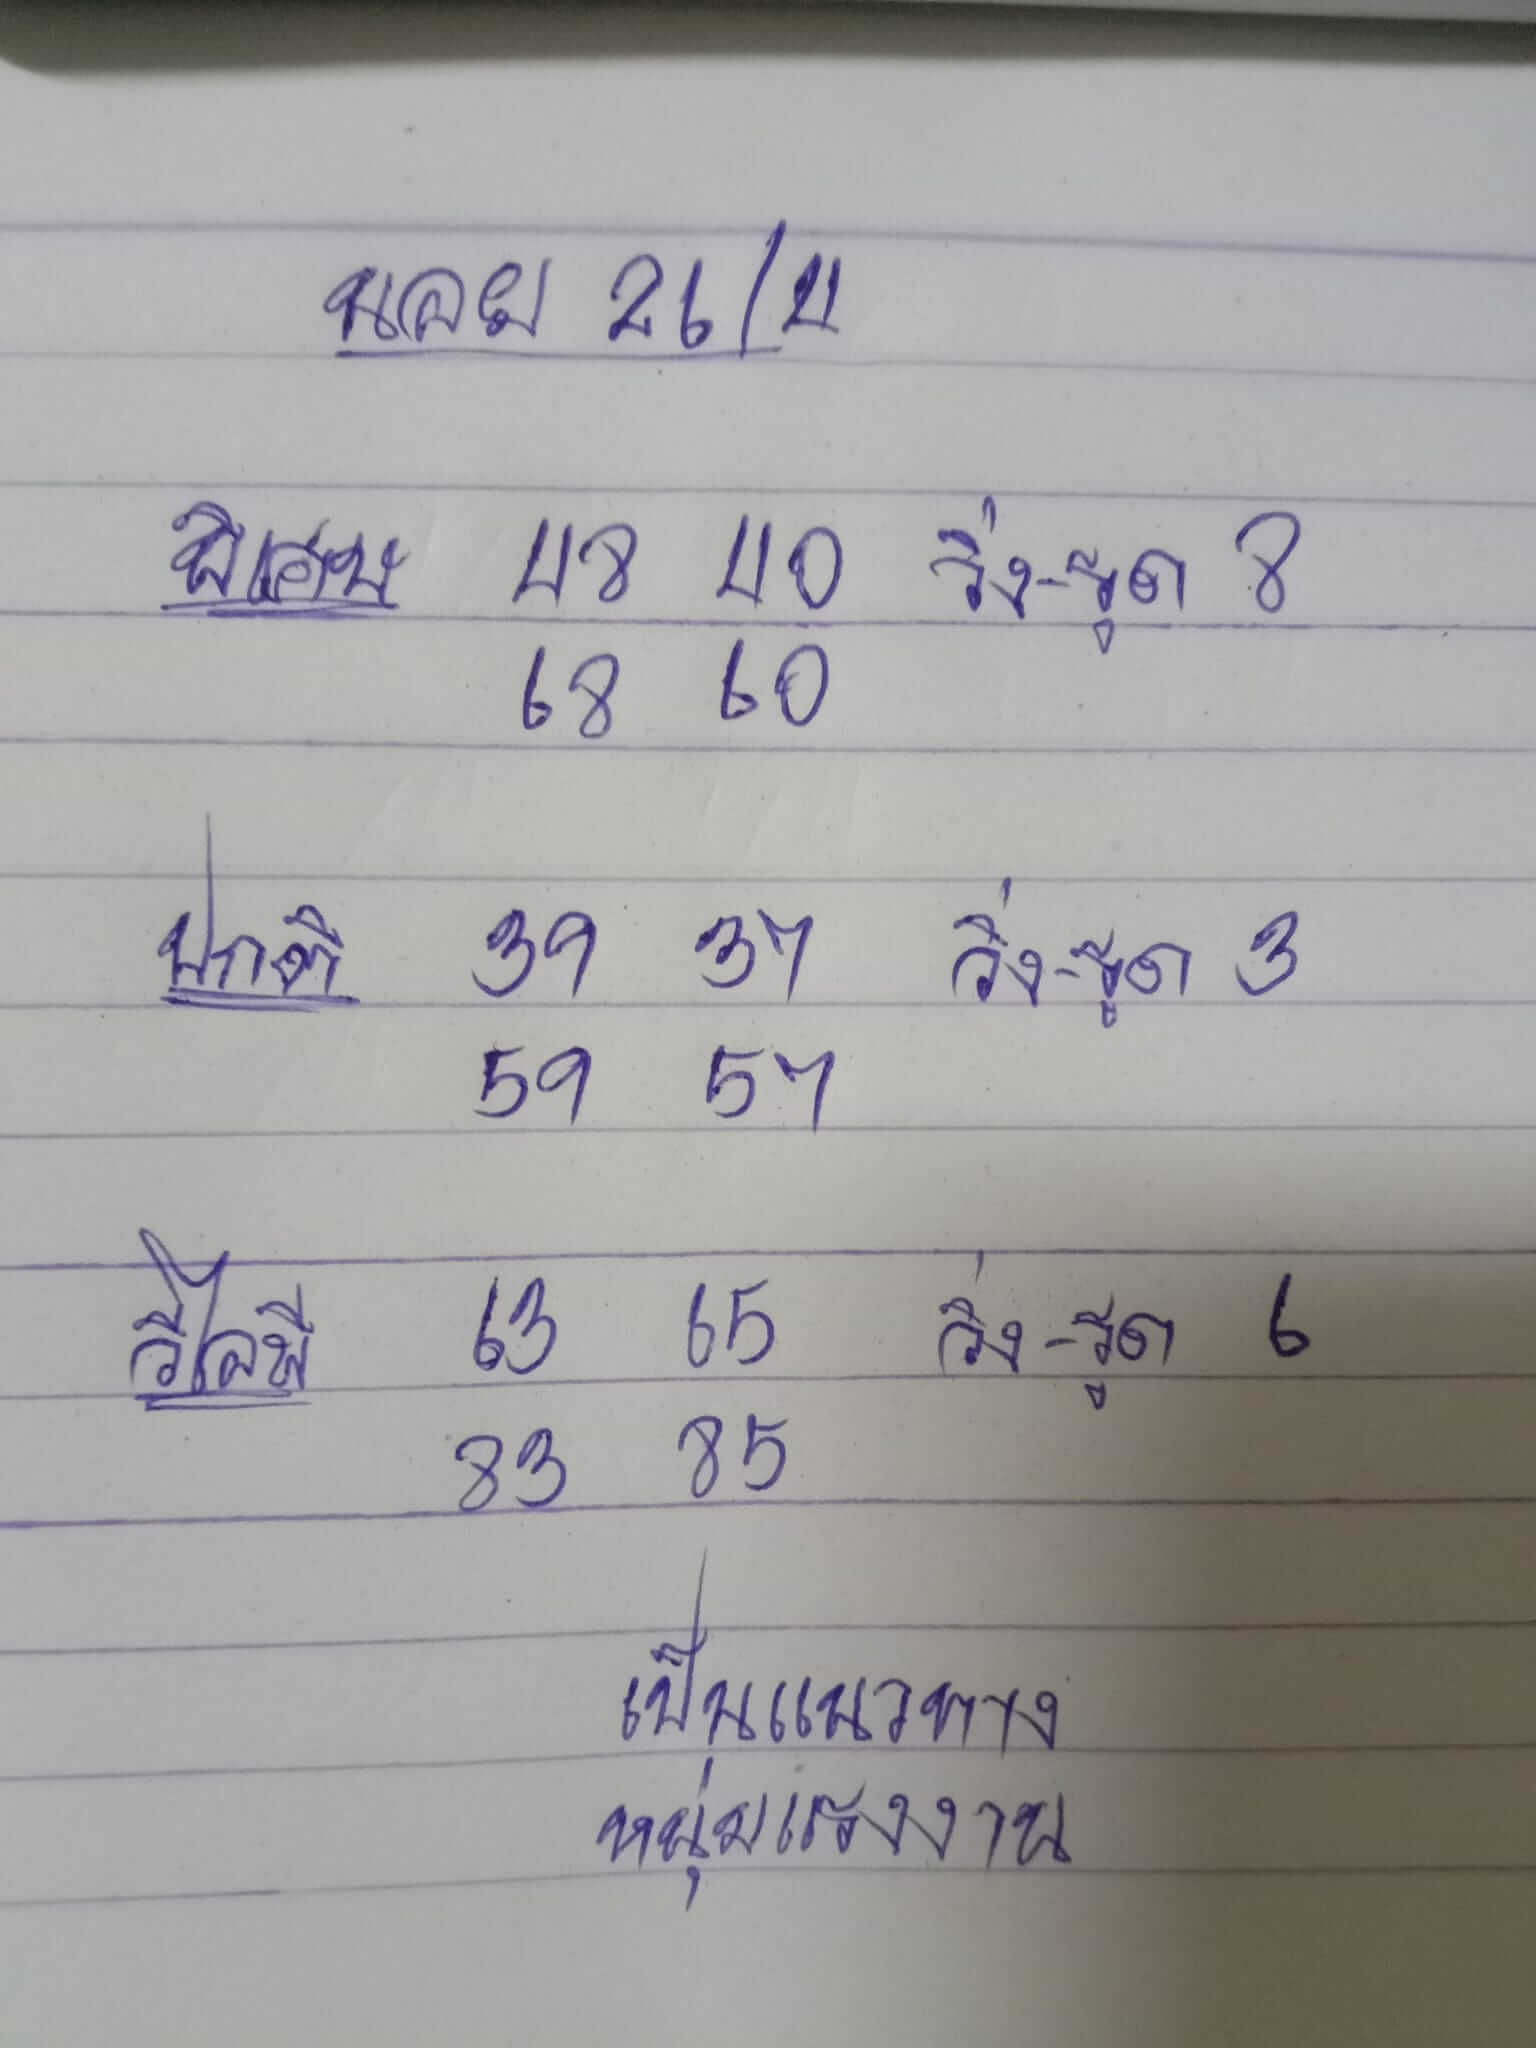 นอย 26/4
พิเศษ 48 40 วิ่ง-รูด 8
68 60
ปกติ 39 37 วิ่ง-รูด 3
59 57
วีไอพี 63 65 วิ่ง-รูด 6
83 85
เป็นแนวทาง
หนุ่มโรงงาน